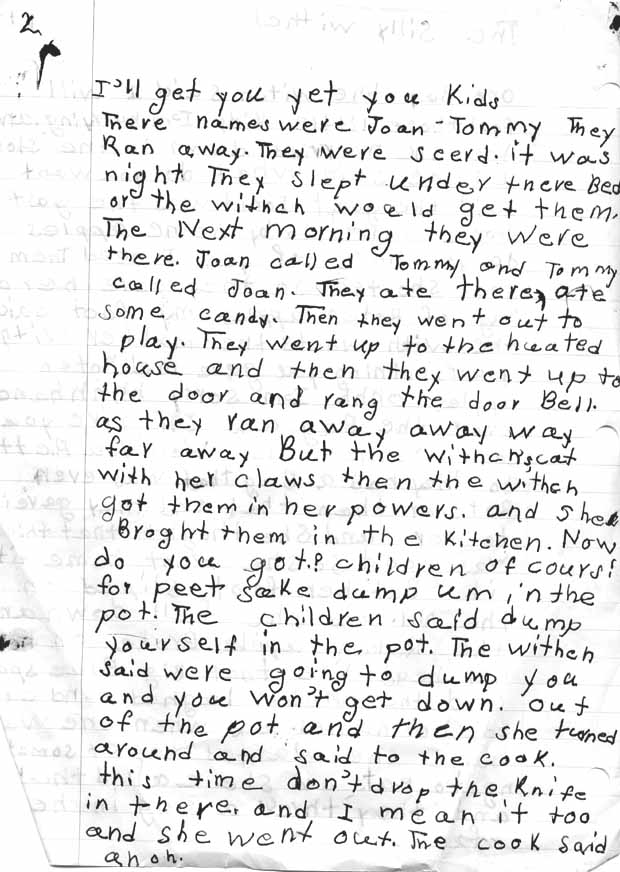 2
I'll get you yet you Kids
There names were Joan-Tommy They
Ran away. They were scerd. it was
night They slept under there Bed
or the withch would get them.
The Next morning they were
there. Joan called Tommy and Tommy
called Joan. They ate there, ate
some candy. Then they went out to
play. They went up to the huated
house and then they went up to
the door and rang the door Bell.
as they ran away away way
far away But the withchscat
with her claws then the withch
got them in her powers. and she
Broght them in the Kitchen. Now
do you got.? children of cours!
for peet sake dump um in the
pot! The children said dump
yourself in the pot. The withch
said were going to dump you
and you won't get down. out
of the pot and then she turned
around and said to the cook.
this time don't drop the Knife
in there. and I mean it too
and she went out. The cook said
ah oh.